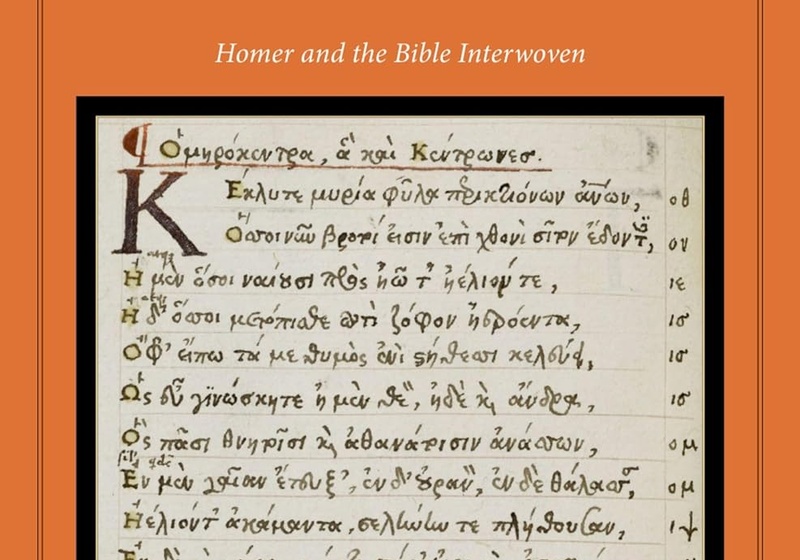 Homer and the Bible Interwoven
Ὁμηρόκεντρα, ἃ καὶ Κέντρωνες.
Κέκλυτε μυρία φῦλα περικτιόνων ἀνων, οθ
Ὅσοι νῦν βροτοί εἰσιν ἐπὶ χθονὶ σῖτον ἔδοντ, ον
Η μὲν ὅσοι ναίουσι πρὸς ἠῶ τ' ἠέλιόν τε, ιε
Η δ' ὅσοι μετόπισθε ποτὶ ζόφον ἠερόεντα, ισ
Ὄφ' εἴπω τά με θυμὸς ἐνὶ στήθεσσι κελεύει, ισ
Ὡς εὖ γινώσκητε ἠ μὲν θε, ἠδὲ κ ἄνδρα, ισ
Ὃς πᾶσι θνητοῖσι κ ἀθανάτοισιν ἀνάσσων, ομ
Εν μὲν γαῖαν ἔτευξ', ἐν δ' οὐραν, ἐν δὲ θάλασσ, ομ
Ἠέλιόντ' ἀκάμαντα, σελήνην τε πλήθουσαν, ιψ